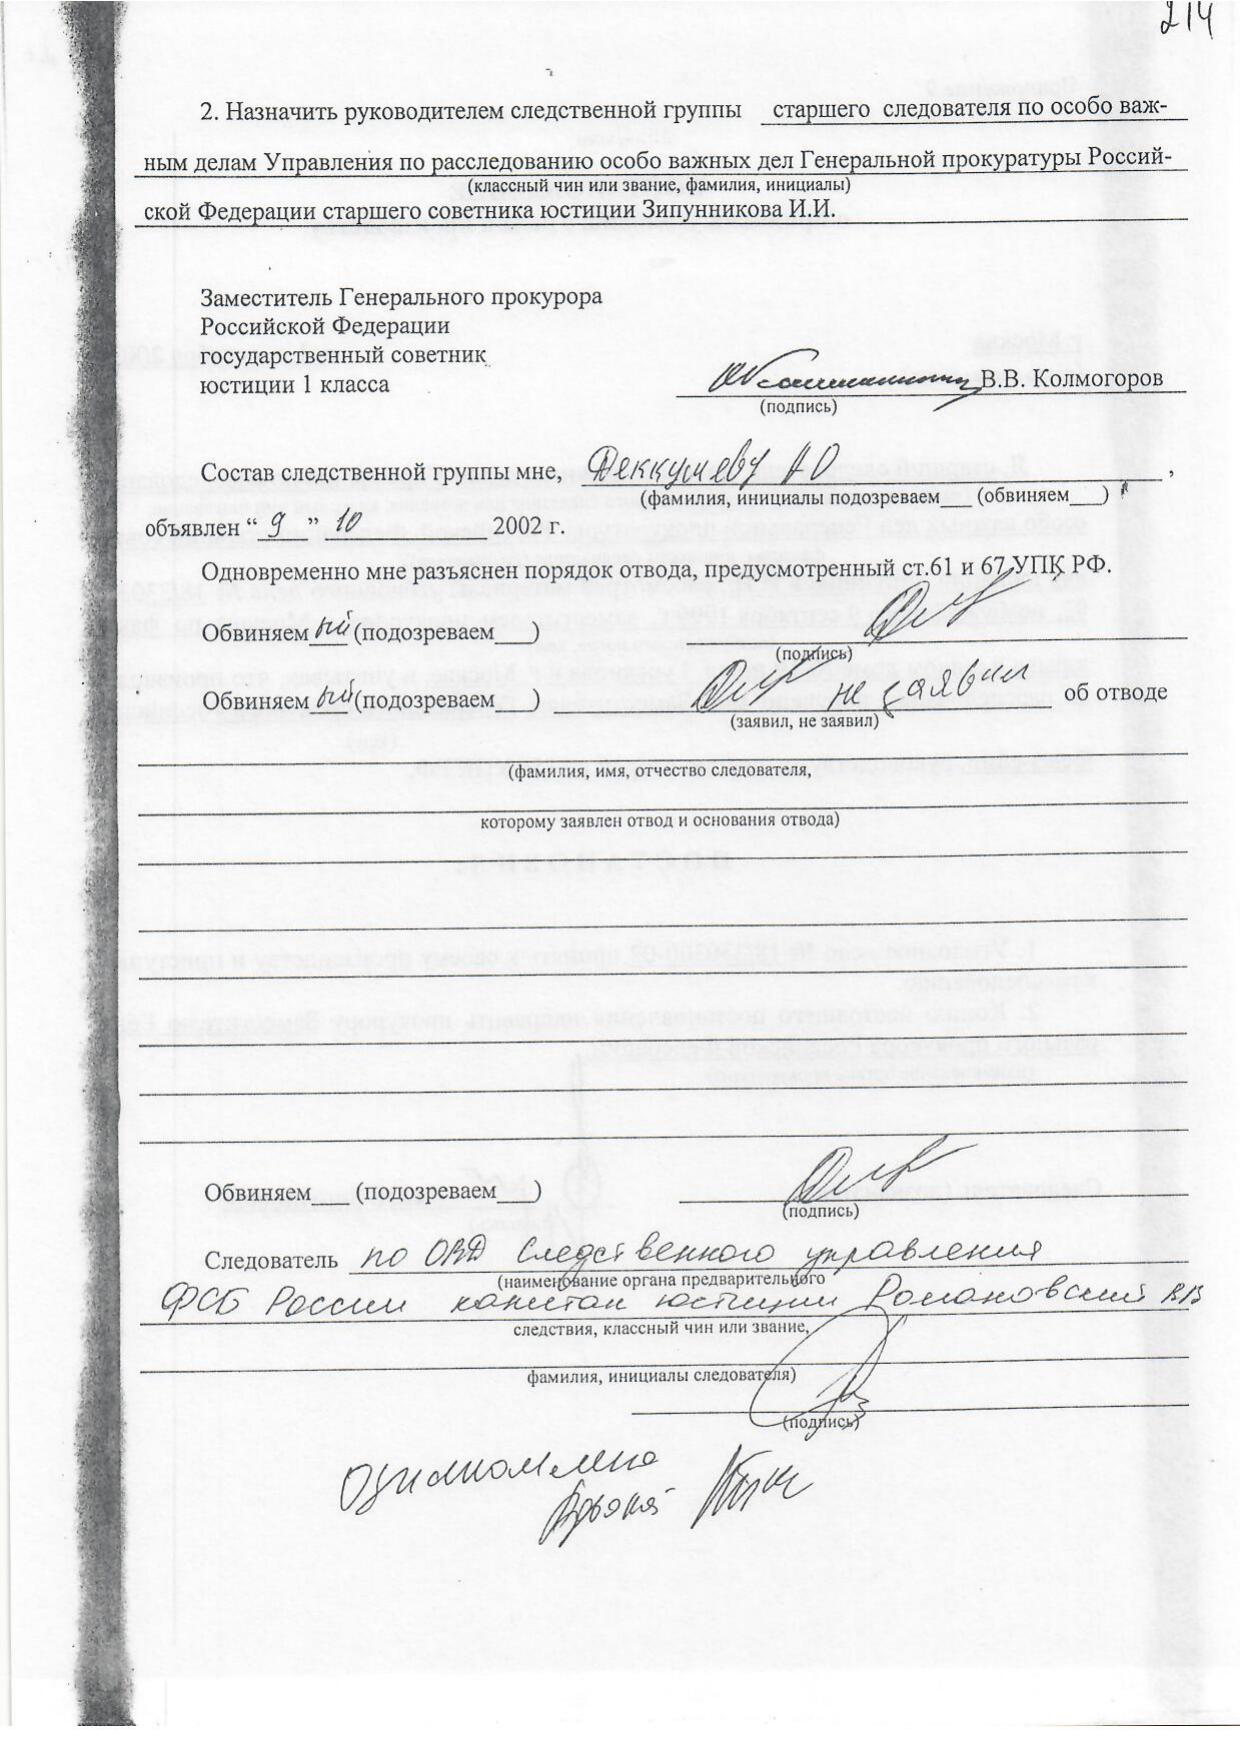 214
2. Назначить руководителем следственной группы старшего следователя по особо важ-
ным делам Управления по расследованию особо важных дел Генеральной прокуратуры Россий-
(классный чин или звание, фамилия, инициалы)
ской Федерации старшего советника юстиции Зипунникова И.И.
Заместитель Генерального прокурора
Российской Федерации
государственный советник
юстиции 1 класса
В.В. Колмогоров
(подпись)
Состав следственной группы мне, Деккушеву АО ,
(фамилия, инициалы подозреваем___ (обвиняем___)
объявлен “ 9 ” 10 2002 г.
Одновременно мне разъяснен порядок отвода, предусмотренный ст.61 и 67 УПК РФ.
Обвиняемый (подозреваем___)
(подпись)
Обвиняемый (подозреваем___) не заявил об отводе
(заявил, не заявил)
(фамилия, имя, отчество следователя,
которому заявлен отвод и основания отвода)
Обвиняем___ (подозреваем___)
(подпись)
Следователь по ОВД Следственного управления
(наименование органа предварительного
ФСБ России капитан юстиции Романовский ВВ
следствия, классный чин или звание,
фамилия, инициалы следователя)
(подпись)
Ознакомлена